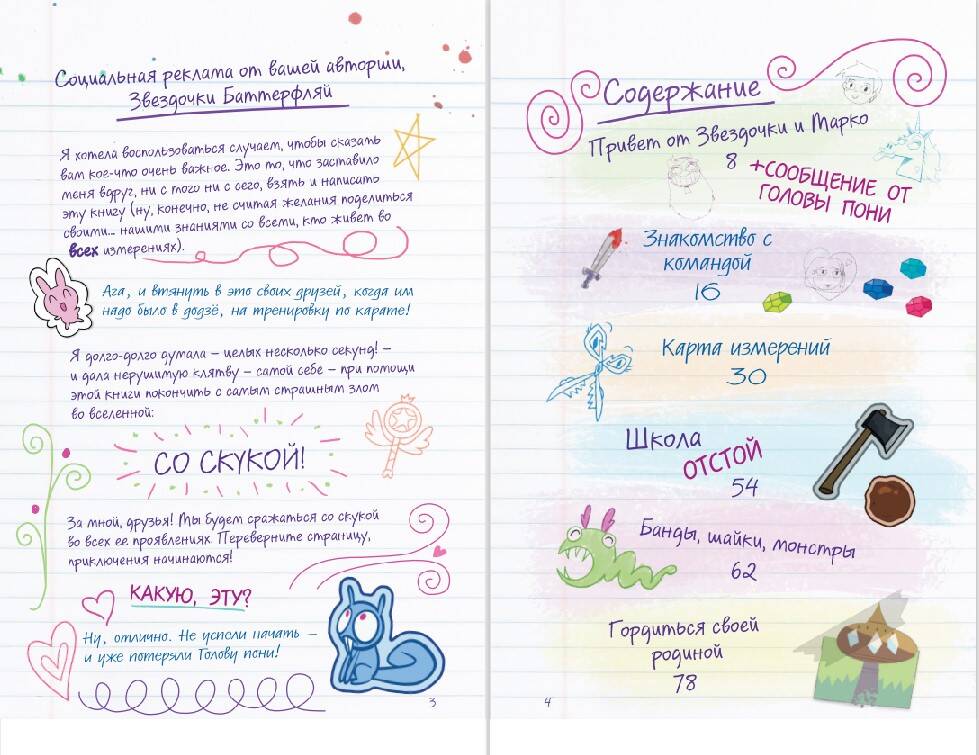 Социальная реклата от вашей авторши,
Звездочки Баттерфляй
Я хотела воспользоваться случаем, чтобы сказать
вам кое-что очень важное. Это то, что заставило
меня вдруг, ни с того ни с сего, взять и написать
эту книгу (ну, конечно, не считая желания поделиться
своими... нашими знаниями со всеми, кто живет во
всех измерениях).
Ага, и втянуть в это своих друзей, когда им
надо было в додзё, на тренировку по карате!
Я долго-долго думала – целых несколько секунд! –
и дала нерушимую клятву – самой себе – при помощи
этой книги покончить с самым страшным злом
во вселенной:
СО СКУКОЙ!
За мной, друзья! Мы будем сражаться со скукой
во всех ее проявлениях. Переверните страницу,
приключения начинаются!
КАКУЮ, ЭТУ?
Ну, отлично. Не успели начать –
и уже потеряли Голову пони!
3
Содержание
Привет от Звездочки и Марко
8
+СООБЩЕНИЕ ОТ
ГОЛОВЫ ПОНИ
Знакомство с
командой
16
Карта измерений
30
Школа
ОТСТОЙ
54
Банды, шайки, монстры
62
Гордиться своей
родиной
78
4